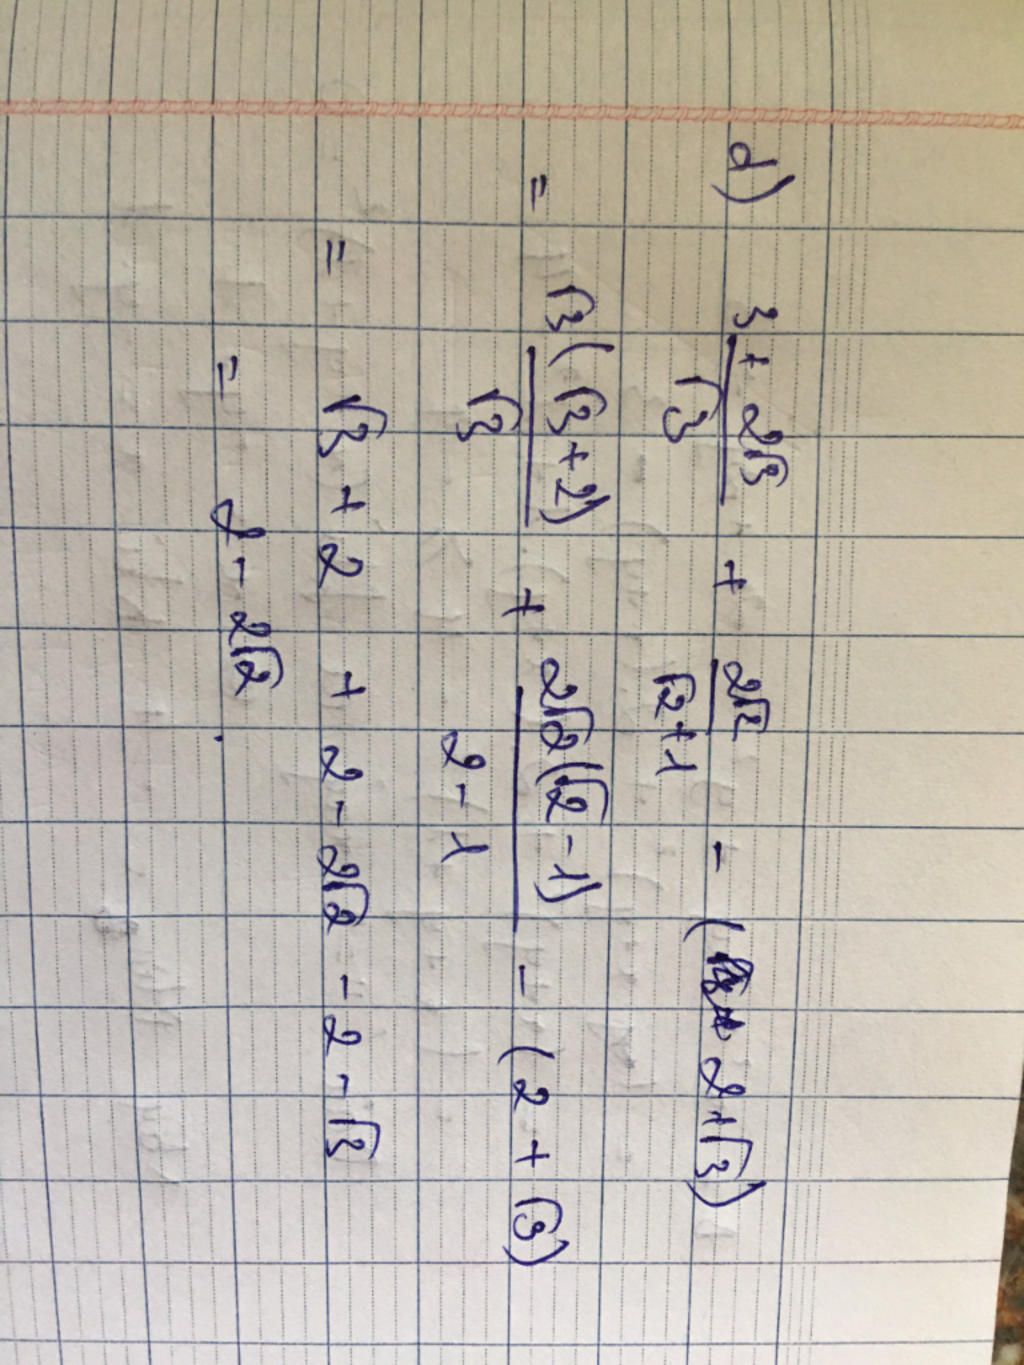 d) (3 + 2√3)/√3 + 2√2/(√2 + 1) - (2 + √3)
= √3(√3 + 2)/√3 + 2√2(√2 - 1)/(2 - 1) - (2 + √3)
= √3 + 2 + 2 - 2√2 - 2 - √3
= 2 - 2√2.